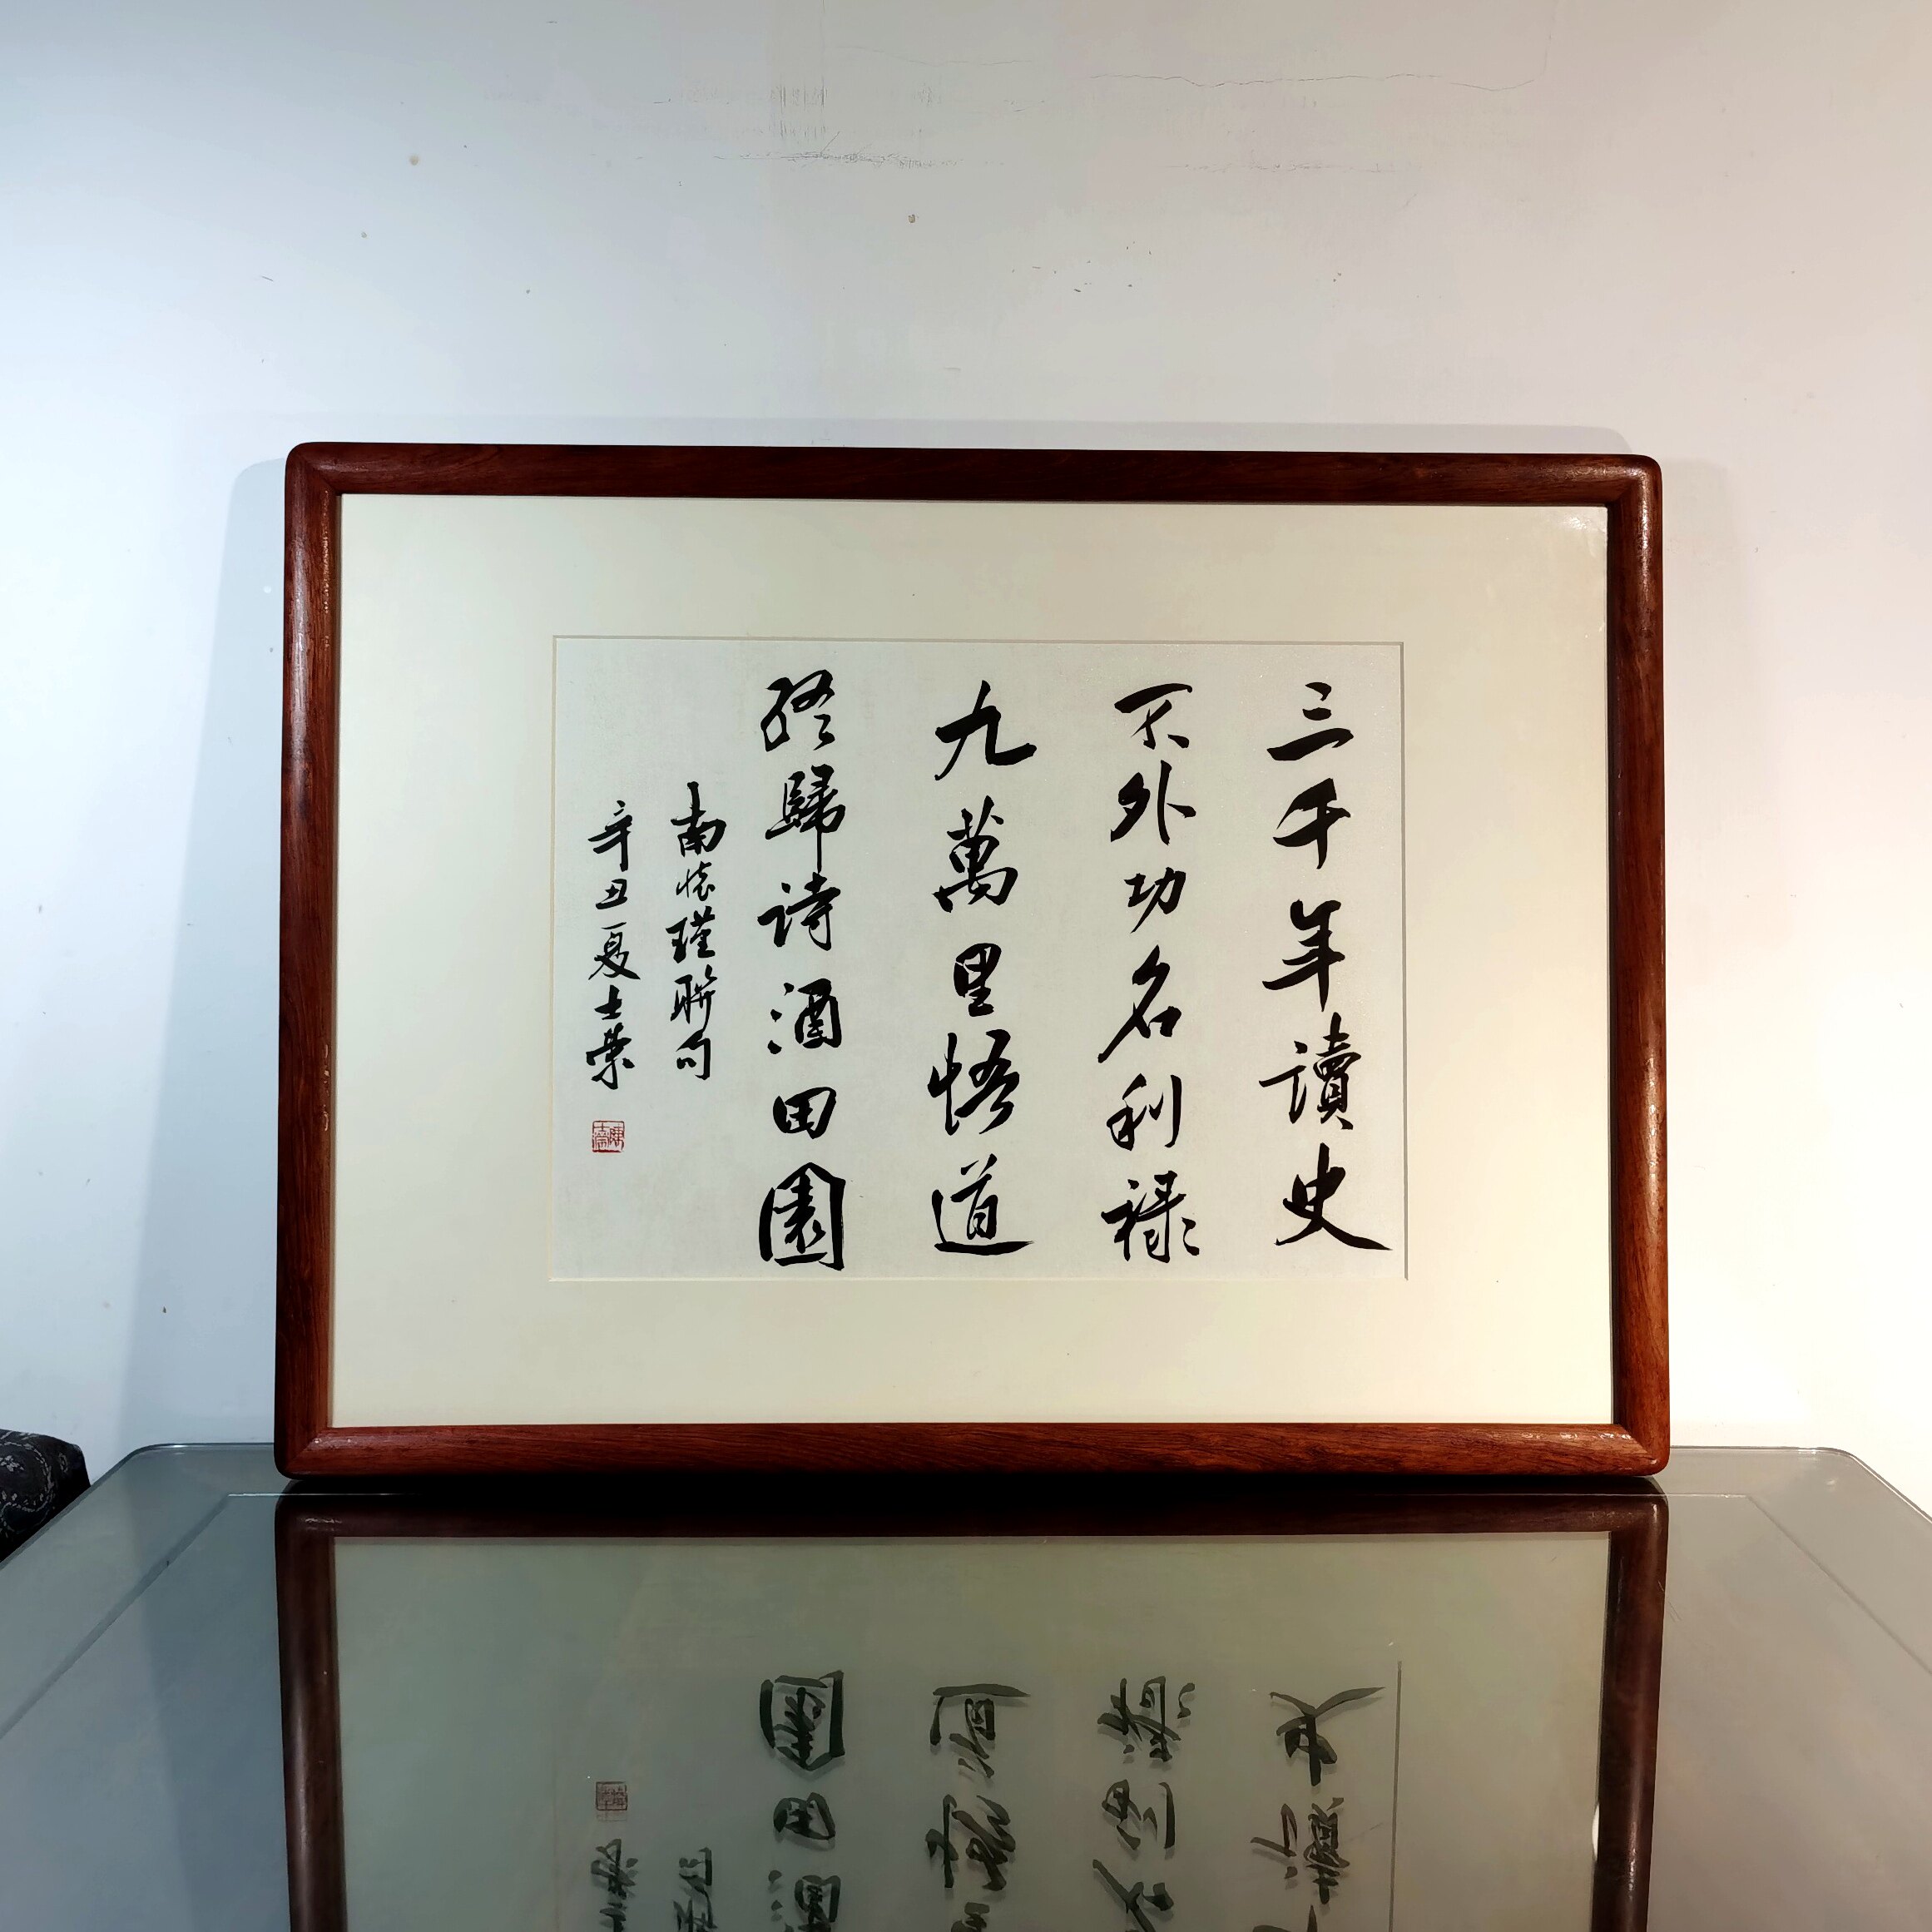 三千年讀史
不外功名利禄
九萬里悟道
終歸诗酒田園
南懷瑾聯句
辛丑夏士榮